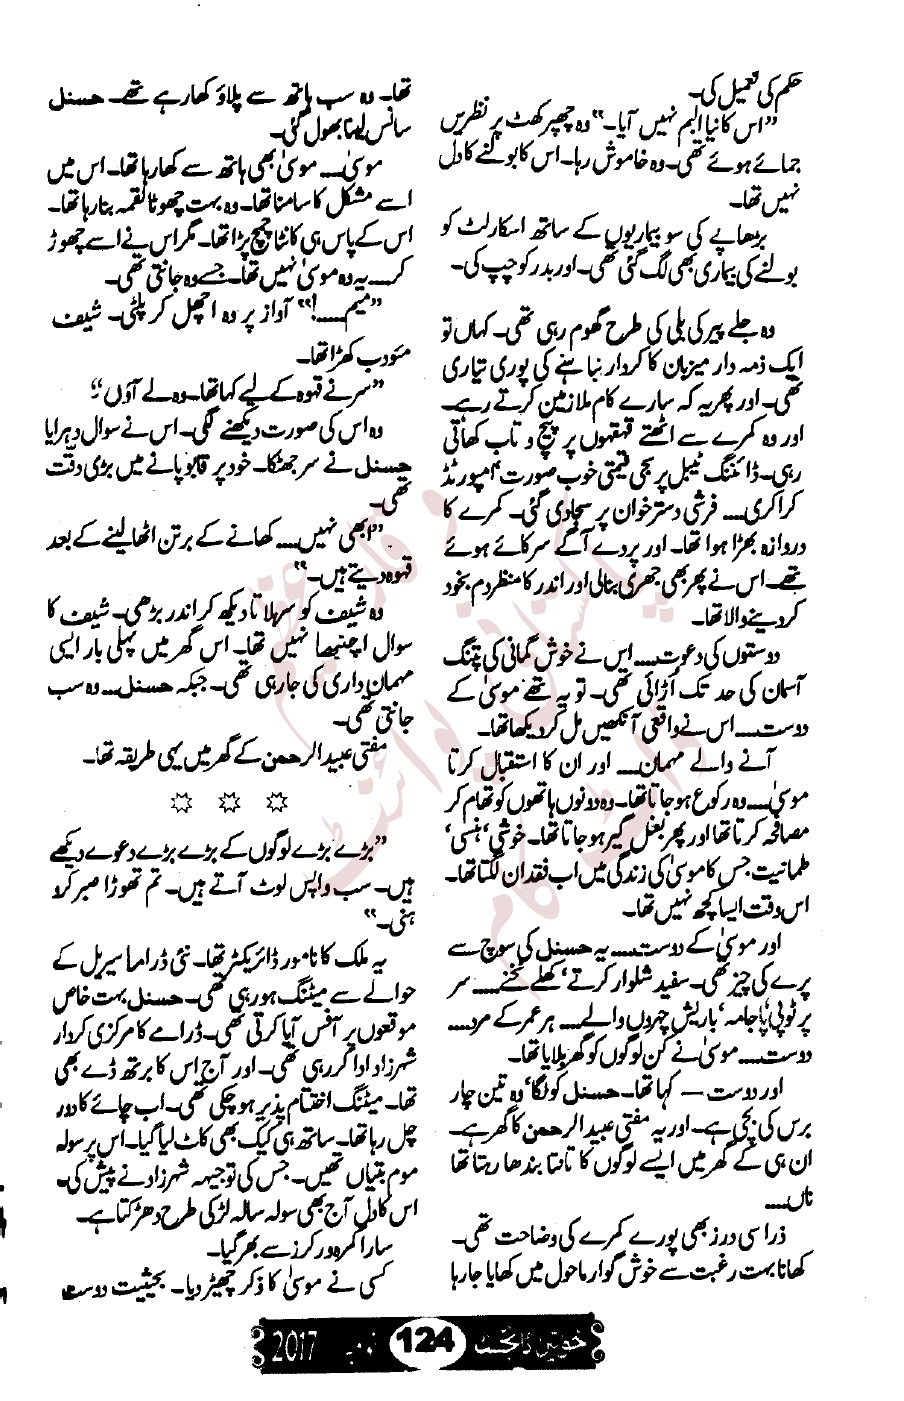 حکم کی تعمیل کی۔
”اس کا نیا البم نہیں آیا۔“ وہ چھپر کھٹ پر نظریں
جمائے ہوئے تھی۔ وہ خاموش رہا۔ اس کا بولنے کا دل
نہیں تھا۔
بڑھاپے کی سو بیماریوں کے ساتھ اسکارلٹ کو
بولنے کی بیماری بھی لگ گئی تھی۔ اور بدر کو چپ کی۔
وہ جلے پیر کی بلی کی طرح گھوم رہی تھی۔ کہاں تو
ایک ذمہ دار میزبان کا کردار نباہنے کی پوری تیاری
تھی۔ اور پھر یہ کہ سارے کام ملازمین کرتے رہے۔
اور وہ کمرے سے اٹھتے قہقہوں پر پیچ و تاب کھاتی
رہی۔ ڈائننگ ٹیبل پر سجی قیمتی خوب صورت امپورٹڈ
کراکری۔۔۔ فرشی دستر خوان پر سجا دی گئی۔ کمرے کا
دروازہ بھڑا ہوا تھا۔ اور پردے آگے سرکائے ہوئے
تھے۔ اس نے پھر بھی جھری بنا لی اور اندر کا منظر دم بخود
کر دینے والا تھا۔
دوستوں کی دعوت۔۔۔ اس نے خوش گمانی کی پتنگ
آسمان کی حد تک اڑائی تھی۔ تو یہ تھے موسیٰ کے
دوست۔۔۔ اس نے واقعی آنکھیں مل کر دیکھا تھا۔
آنے والے مہمان۔۔۔ اور ان کا استقبال کرتا
موسیٰ۔۔۔ وہ رکوع ہو جاتا تھا۔ وہ دونوں ہاتھوں کو تھام کر
مصافحہ کرتا تھا اور پھر بغل گیر ہو جاتا تھا۔ خوشی‘ ہنسی‘
طمانیت جس کا موسیٰ کی زندگی میں اب فقدان لگتا تھا۔
اس وقت ایسا کچھ نہیں تھا۔
اور موسیٰ کے دوست۔۔۔ یہ حسنل کی سوچ سے
پرے کی چیز تھی۔ سفید شلوار کرتے‘ کھلے ٹخنے۔۔۔ سر
پر ٹوپی‘ پاجامہ‘ باریش چہروں والے۔۔۔ ہر عمر کے مرد۔۔۔
دوست۔۔۔ موسیٰ نے کن لوگوں کو گھر بلایا تھا۔
اور دوست — کہا تھا۔ حسنل کو لگا‘ وہ تین چار
برس کی بچی ہے۔ اور یہ مفتی عبید الرحمن کا گھر ہے۔
ان ہی کے گھر میں ایسے لوگوں کا تانتا بندھا رہتا تھا
ناں۔۔۔
ذرا سی درز بھی پورے کمرے کی وضاحت تھی۔
کھانا بہت رغبت سے خوش گوار ماحول میں کھایا جا رہا
تھا۔ وہ سب ہاتھ سے پلاؤ کھا رہے تھے۔ حسنل
سانس لینا بھول گئی۔
موسیٰ۔۔۔ موسیٰ بھی ہاتھ سے کھا رہا تھا۔ اس میں
اسے مشکل کا سامنا تھا۔ وہ بہت چھوٹا لقمہ بنا رہا تھا۔
اس کے پاس ہی کانٹا چمچ پڑا تھا۔ مگر اس نے اسے چھوڑ
کر۔۔۔ یہ وہ موسیٰ نہیں تھا۔ جسے وہ جانتی تھی۔
”میم۔۔۔!“ آواز پر وہ اچھل کر پلٹی۔ شیف
مئودب کھڑا تھا۔
”سر نے قہوہ کے لیے کہا تھا۔ وہ لے آؤں؟“
وہ اس کی صورت دیکھنے لگی۔ اس نے سوال دہرایا
حسنل نے سر جھٹکا۔ خود پر قابو پانے میں بڑی دقت
تھی۔
”ابھی نہیں۔۔۔ کھانے کے برتن اٹھا لینے کے بعد
قہوہ دیتے ہیں۔“
وہ شیف کو سہلاتا دیکھ کر اندر بڑھی۔ شیف کا
سوال اچنبھا نہیں تھا۔ اس گھر میں پہلی بار ایسی
مہمان داری کی جا رہی تھی۔ جبکہ حسنل۔۔۔ وہ سب
جانتی تھی۔
مفتی عبید الرحمن کے گھر میں یہی طریقہ تھا۔
☼ ☼ ☼
”بڑے بڑے لوگوں کے بڑے بڑے دعوے دیکھے
ہیں۔ سب واپس لوٹ آتے ہیں۔ تم تھوڑا صبر کرو
ہنی۔“
یہ ملک کا نامور ڈائریکٹر تھا۔ نئی ڈراما سیریل کے
حوالے سے میٹنگ ہو رہی تھی۔ حسنل بہت خاص
موقعوں پر آفس آیا کرتی تھی۔ ڈرامے کا مرکزی کردار
شہرزاد ادا کر رہی تھی۔ اور آج اس کا برتھ ڈے بھی
تھا۔ میٹنگ اختتام پذیر ہو چکی تھی۔ اب چائے کا دور
چل رہا تھا۔ ساتھ ہی کیک بھی کاٹ لیا گیا۔ اس پر سولہ
موم بتیاں تھیں۔ جس کی توجیہہ شہرزاد نے پیش کی۔
اس کا دل آج بھی سولہ سالہ لڑکی کی طرح دھڑکتا ہے۔
سارا کمرہ ورکرز سے بھر گیا۔
کسی نے موسیٰ کا ذکر چھیڑ دیا۔ بحیثیت دوست
خواتین ڈائجسٹ 124 نومبر 2017